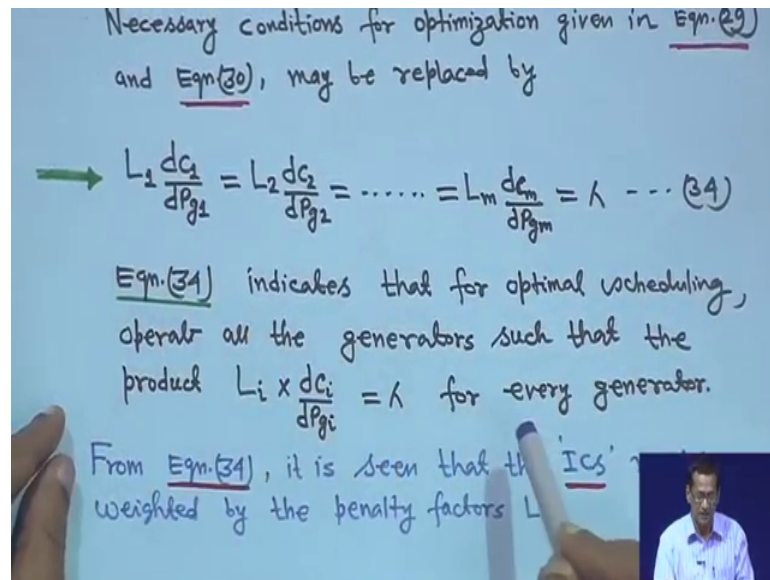 Necessary conditions for optimization given in Eqn.(29)
and Eqn(30), may be replaced by
L1 dC1/dPg1 = L2 dC2/dPg2 = ...... = Lm dCm/dPgm = λ --- (34)
Eqn.(34) indicates that for optimal scheduling,
operate all the generators such that the
product Li × dCi/dPgi = λ for every generator.
From Eqn.(34), it is seen that th 'ICs'
weighted by the penalty factors L